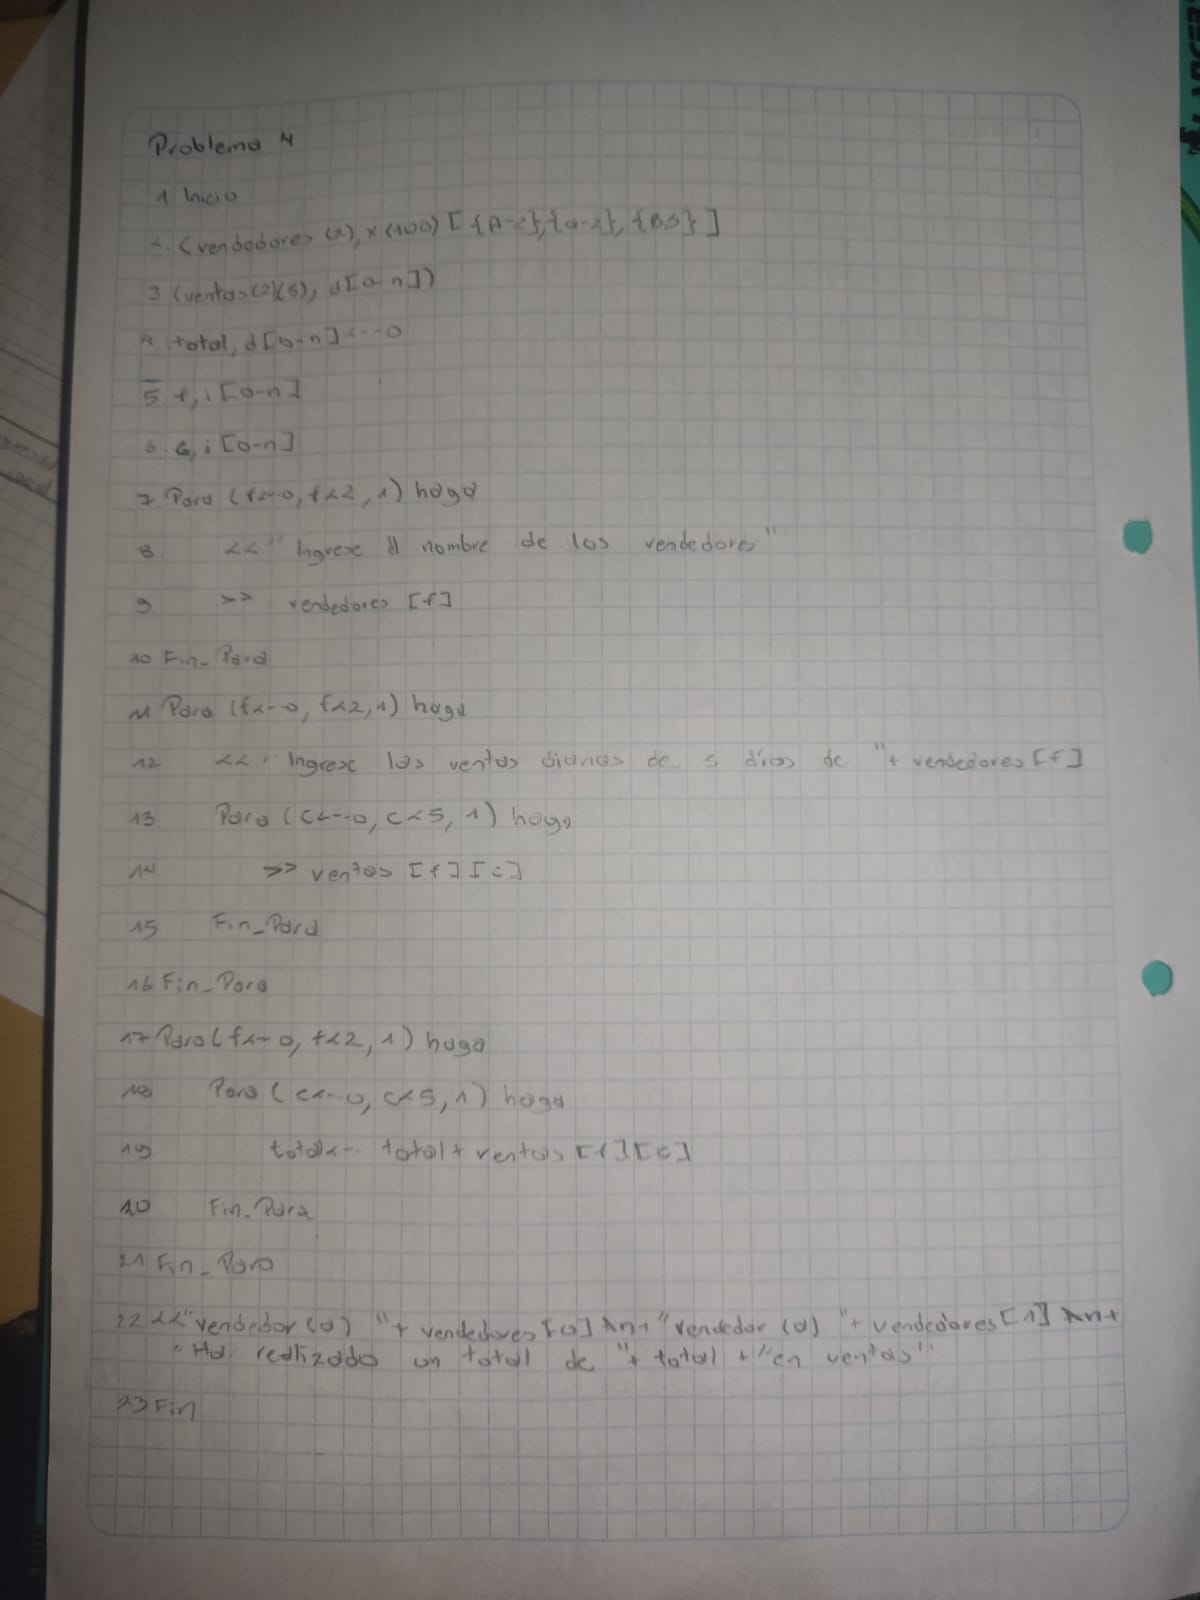 Problema 4
1 Inicio
2. (vendedores (2), x(100) [{A-Z},{a-z},{BS}]
3 (ventas(2)(5), d[0-n])
4 (total, d[0-n]<--0
5 f, i [0-n]
6. c, i [0-n]
7 Para (f<--0, f<2, 1) haga
8 << "Ingrese el nombre de los vendedores"
9 >> vendedores [f]
10 Fin_Para
11 Para (f<--0, f<2, 1) haga
12 << "Ingrese las ventas diarias de 5 días de "+ vendedores [f]
13 Para (c<--0, c<5, 1) haga
14 >> ventas [f][c]
15 Fin_Para
16 Fin_Para
17 Para (f<--0, f<2, 1) haga
18 Para (c<--0, c<5, 1) haga
19 total<-- total + ventas [f][c]
20 Fin_Para
21 Fin_Para
22 <<"vendedor(a) "+ vendedores[0] \n+ "vendedor(a) "+ vendedores[1] \n+
"Ha realizado un total de "+ total + "en ventas"
23 Fin